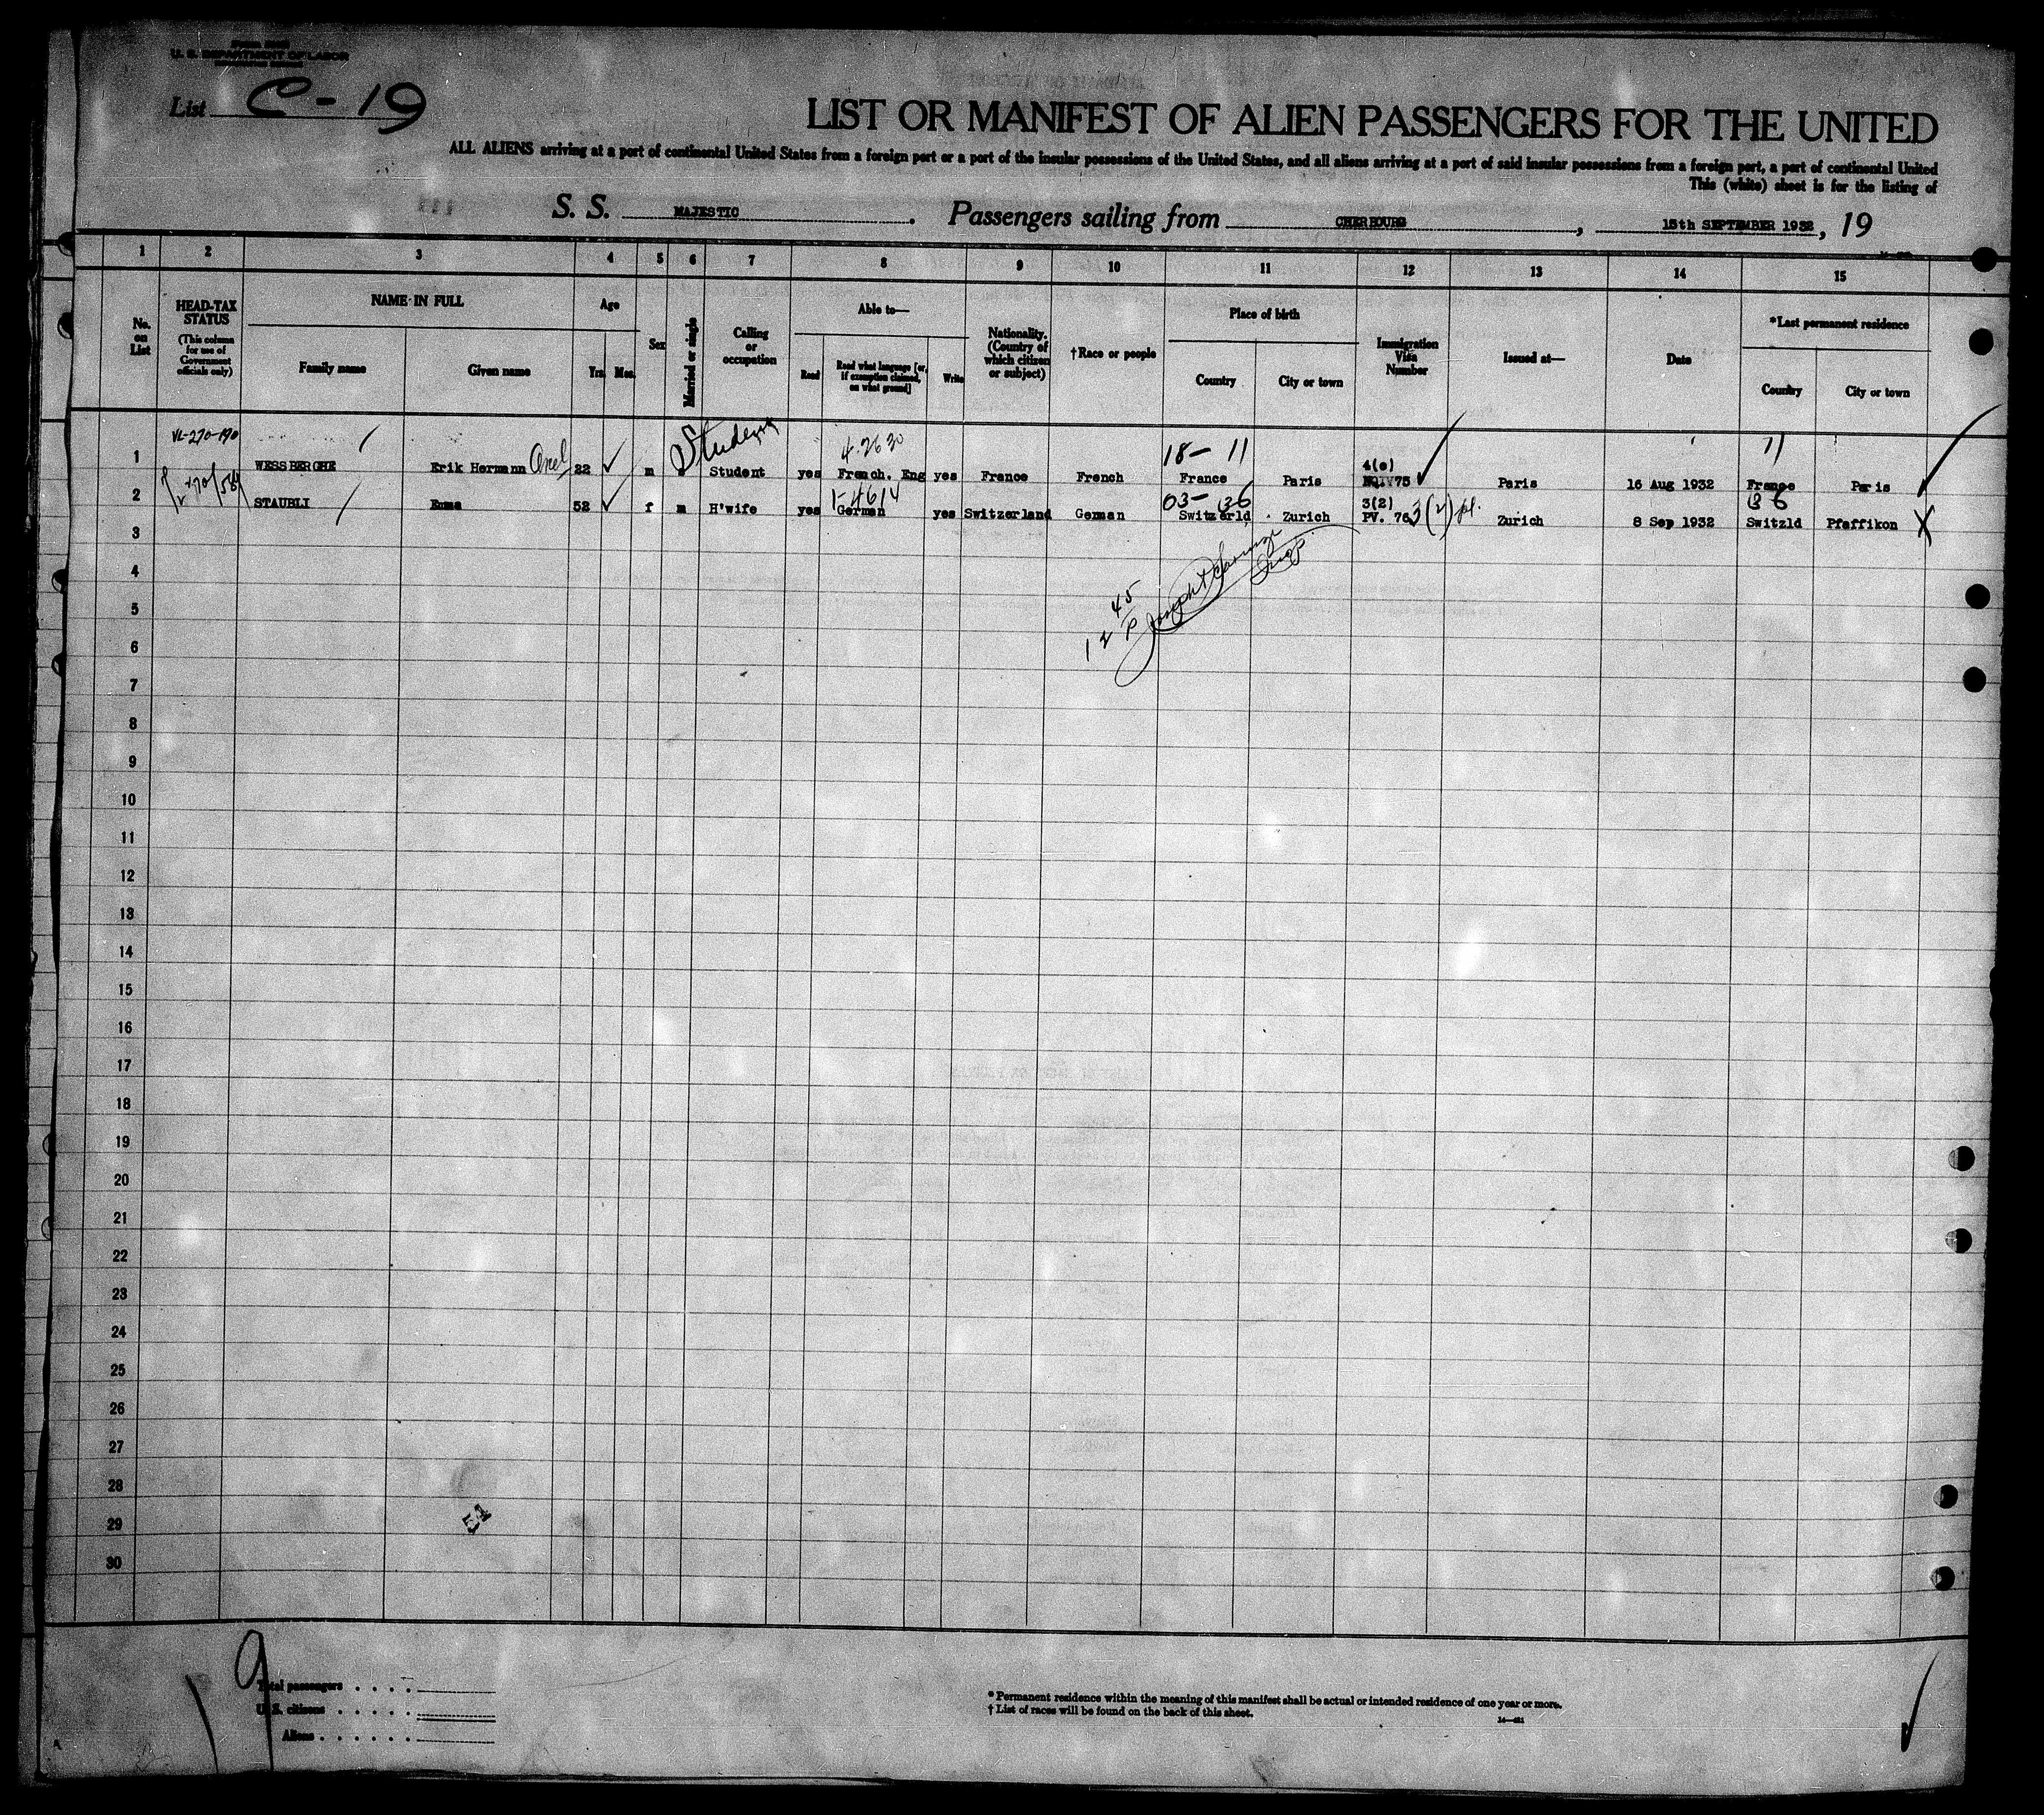 U. S. DEPARTMENT OF LABOR
List C-19
LIST OR MANIFEST OF ALIEN PASSENGERS FOR THE UNITED
ALL ALIENS arriving at a port of continental United States from a foreign port or a port of the insular possessions of the United States, and all aliens arriving at a port of said insular possessions from a foreign port, a port of continental United
This (white) sheet is for the listing of
S. S. MAJESTIC. Passengers sailing from CHERBOURG, 15th SEPTEMBER 1932, 19
1 2 3 4 5 6 7 8 9 10 11 12 13 14 15
No. on List
HEAD-TAX STATUS
(This column for use of Government officials only)
NAME IN FULL
Family name
Given name
Age
Yrs. Mos.
Sex
Married or single
Calling or occupation
Able to—
Read
Read what language [or, if exemption claimed, on what ground]
Write
Nationality. (Country of which citizen or subject)
†Race or people
Place of birth
Country
City or town
Immigration Visa Number
Issued at—
Date
*Last permanent residence
Country
City or town
VL-270-190 Student 4-2630 18- 11 4(e) 11
1 WESSBERGHE Erik Hermann Axel 22 m Student yes French. Eng yes France French France Paris NQIV75 Paris 16 Aug 1932 France Paris
1-4614 03- 36 3(2) 36
2 STAUBLI Emma 52 f m H'wife yes German yes Switzerland German Switzerld Zurich PV. 763 (2) Zurich 8 Sep 1932 Switzld Pfaffikon
3
4
5
6
7
8
9
10
11
12
13
14
15
16
17
18
19
20
21
22
23
24
25
26
27
28
29
30
51
9
Total passengers
U. S. citizens
Aliens
* Permanent residence within the meaning of this manifest shall be actual or intended residence of one year or more.
† List of races will be found on the back of this sheet.